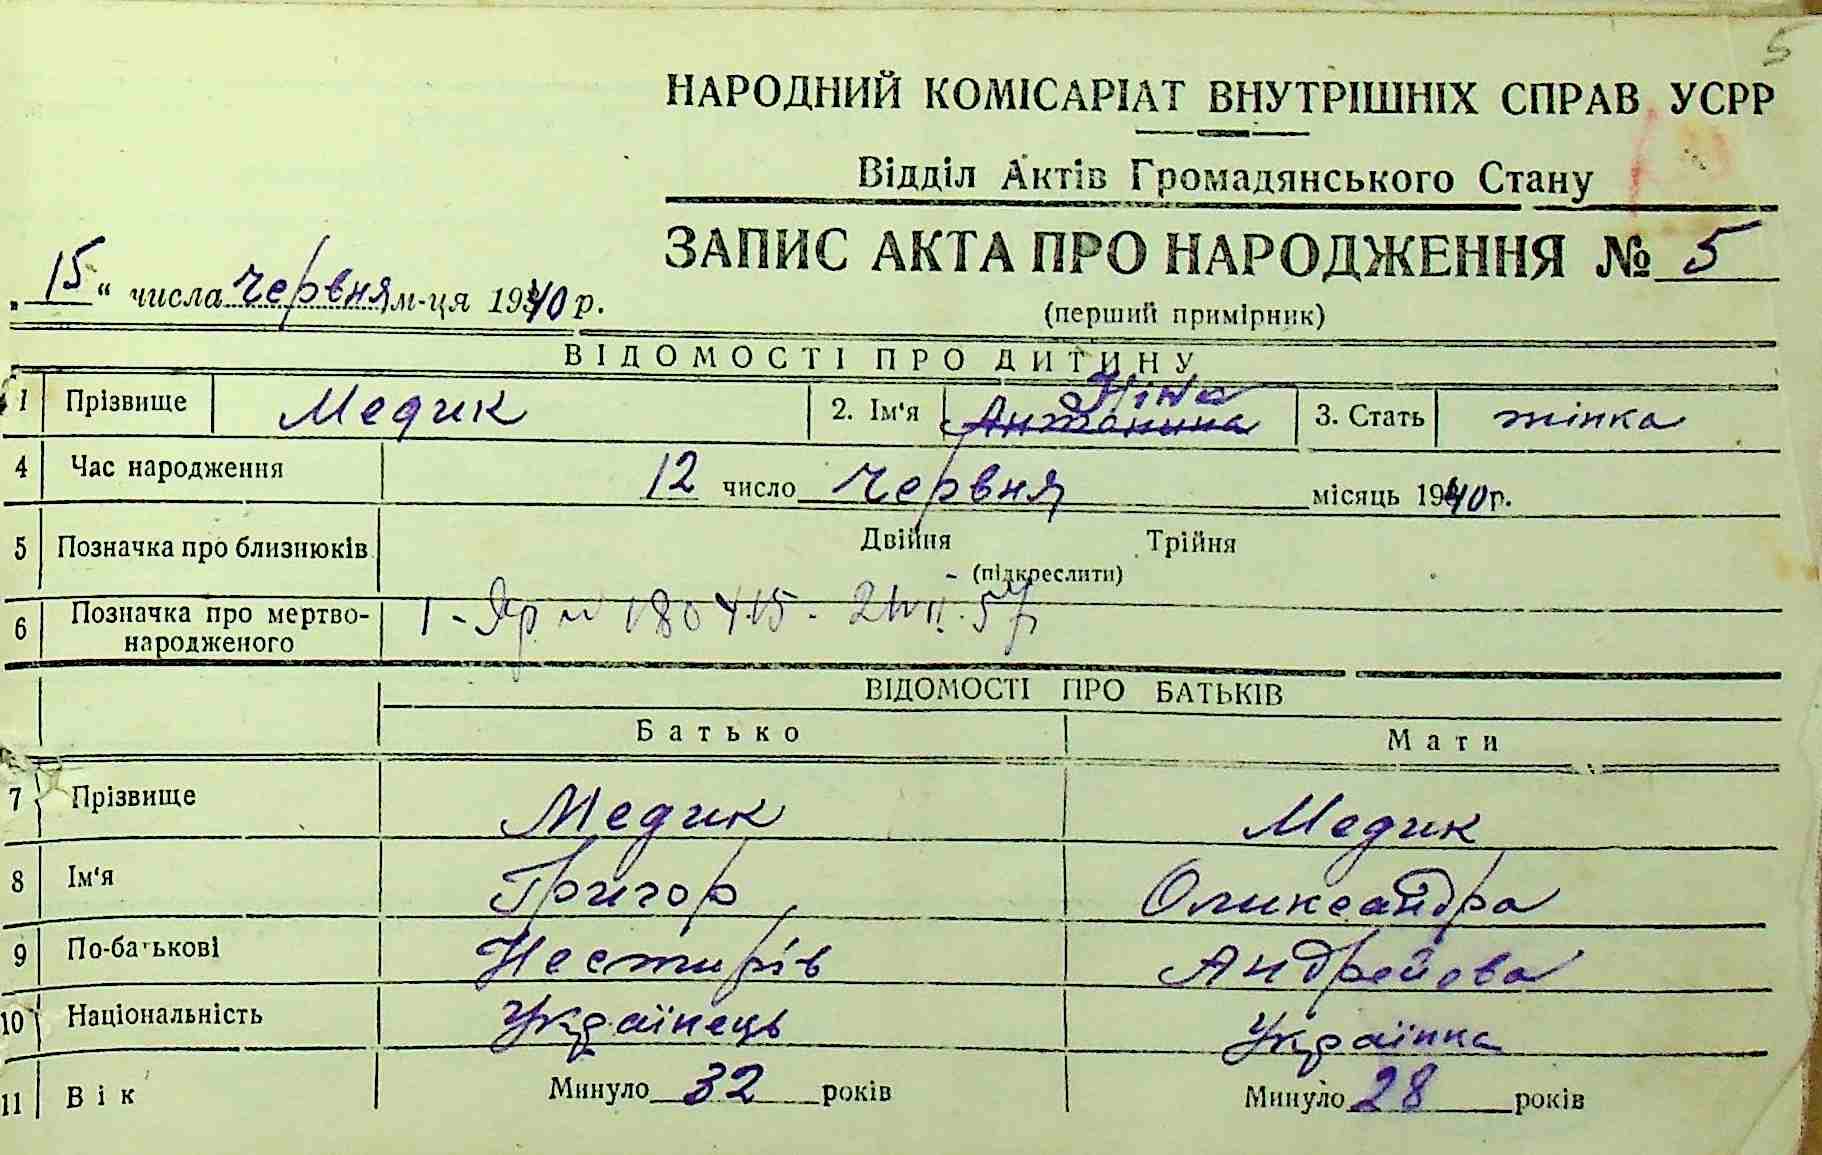 5
НАРОДНИЙ КОМІСАРІАТ ВНУТРІШНІХ СПРАВ УСРР
Відділ Актів Громадянського Стану
ЗАПИС АКТА ПРО НАРОДЖЕННЯ № 5
„15“ числа червня м-ця 1940 р.
(перший примірник)
ВІДОМОСТІ ПРО ДИТИНУ
Ніна
1 Прізвище Медик 2. Ім'я Антонина 3. Стать жінка
4 Час народження 12 число червня місяць 1940 р.
5 Позначка про близнюків Двійня Трійня
(підкреслити)
6 Позначка про мертво-
народженого
ВІДОМОСТІ ПРО БАТЬКІВ
Батько Мати
7 Прізвище Медик Медик
8 Ім'я Григор Олександра
9 По-батькові Нестирів Андрейова
10 Національність Українець Українка
11 Вік Минуло 32 років Минуло 28 років